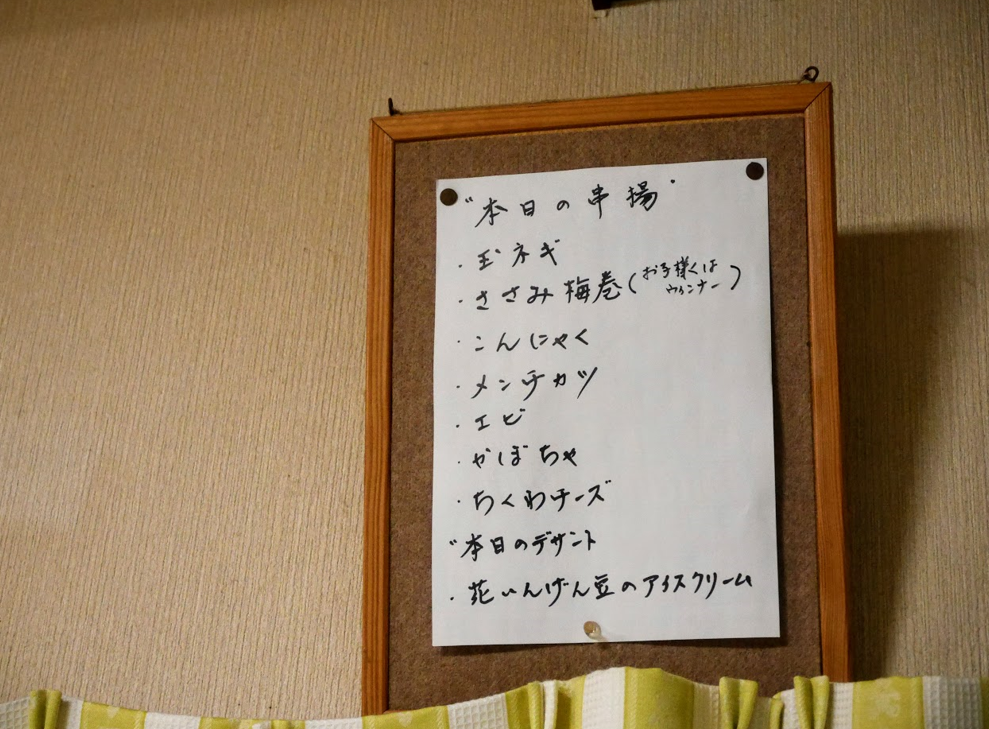 "本日の串揚"
・玉ネギ
・ささみ梅巻(お子様くは
ウィンナー)
・こんにゃく
・メンチカツ
・エビ
・かぼちゃ
・ちくわチーズ
"本日のデザート
・花いんげん豆のアイスクリーム